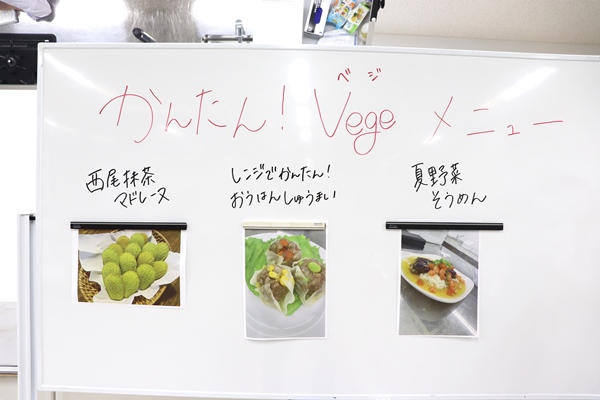 かんたん! Vege メニュー
ベジ
西尾抹茶
マドレーヌ
レンジでかんたん!
おうはんしゅうまい
夏野菜
そうめん